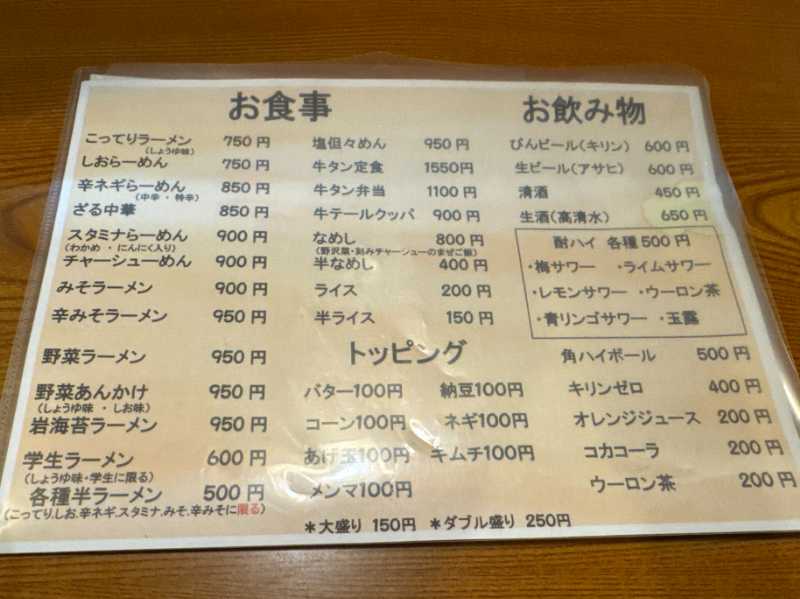 お食事
こってりラーメン 750円
(しょうゆ味)
しおらーめん 750円
辛ネギらーめん 850円
(中辛・特辛)
ざる中華 850円
スタミナらーめん 900円
(わかめ・にんにく入り)
チャーシューめん 900円
みそラーメン 900円
辛みそラーメン 950円
野菜ラーメン 950円
野菜あんかけ 950円
(しょうゆ味・しお味)
岩海苔ラーメン 950円
学生ラーメン 600円
(しょうゆ味・学生に限る)
各種半ラーメン 500円
(こってり,しお,辛ネギ,スタミナ,みそ,辛みそに限る)
塩但々めん 950円
牛タン定食 1550円
牛タン弁当 1100円
牛テールクッパ 900円
なめし 800円
(野沢菜・刻みチャーシューのまぜご飯)
半なめし 400円
ライス 200円
半ライス 150円
トッピング
バター100円 納豆100円
コーン100円 ネギ100円
あげ玉100円 キムチ100円
メンマ100円
*大盛り 150円 *ダブル盛り 250円
お飲み物
びんビール(キリン) 600円
生ビール(アサヒ) 600円
清酒 450円
生酒(高清水) 650円
酎ハイ 各種500円
・梅サワー ・ライムサワー
・レモンサワー ・ウーロン茶
・青リンゴサワー ・玉露
角ハイボール 500円
キリンゼロ 400円
オレンジジュース 200円
コカコーラ 200円
ウーロン茶 200円